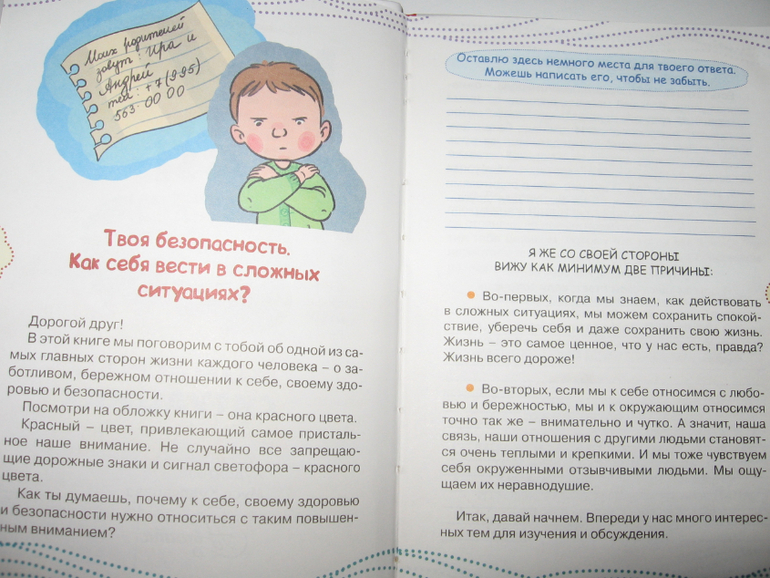 Моих родителей
зовут: Ира и
Андрей
тел. +7(995)
563 00 00
Твоя безопасность.
Как себя вести в сложных
ситуациях?
Дорогой друг!
В этой книге мы поговорим с тобой об одной из са-
мых главных сторон жизни каждого человека – о за-
ботливом, бережном отношении к себе, своему здо-
ровью и безопасности.
Посмотри на обложку книги – она красного цвета.
Красный – цвет, привлекающий самое присталь-
ное наше внимание. Не случайно все запрещаю-
щие дорожные знаки и сигнал светофора – красного
цвета.
Как ты думаешь, почему к себе, своему здоровью
и безопасности нужно относиться с таким повышен-
ным вниманием?
Оставлю здесь немного места для твоего ответа.
Можешь написать его, чтобы не забыть.
Я ЖЕ СО СВОЕЙ СТОРОНЫ
ВИЖУ КАК МИНИМУМ ДВЕ ПРИЧИНЫ:
• Во-первых, когда мы знаем, как действовать
в сложных ситуациях, мы можем сохранить спокой-
ствие, уберечь себя и даже сохранить свою жизнь.
Жизнь – это самое ценное, что у нас есть, правда?
Жизнь всего дороже!
• Во-вторых, если мы к себе относимся с любо-
вью и бережностью, мы и к окружающим относимся
точно так же – внимательно и чутко. А значит, наша
связь, наши отношения с другими людьми становят-
ся очень теплыми и крепкими. И мы тоже чувствуем
себя окруженными отзывчивыми людьми. Мы ощу-
щаем их неравнодушие.
Итак, давай начнем. Впереди у нас много интерес-
ных тем для изучения и обсуждения.